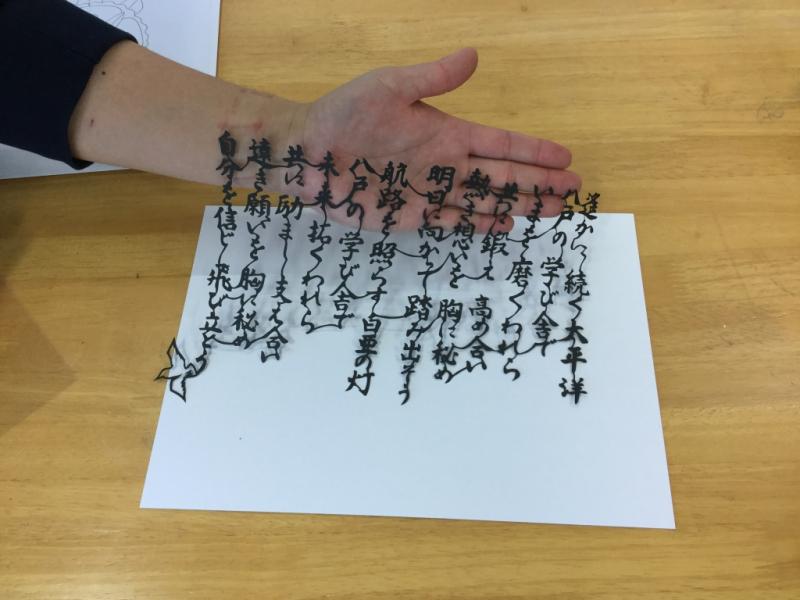 遥かに続く太平洋
八戸の学び舎で
いまを磨くわれら
共に鍛え高め合い
熱き想いを胸に秘め
明日に向かって踏み出そう
航路を照らす白亜の灯
八戸の学び舎で
未来拓くわれら
共に励まし支え合い
遠き願いを胸に秘め
自分を信じ飛び立とう